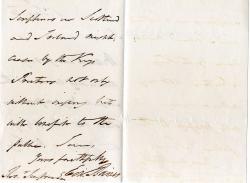 Scriptures in Scotland
and Ireland might
cease by the Kings
Printers not only
without injury but
with benefit to the
public. I am
Yours faithfully